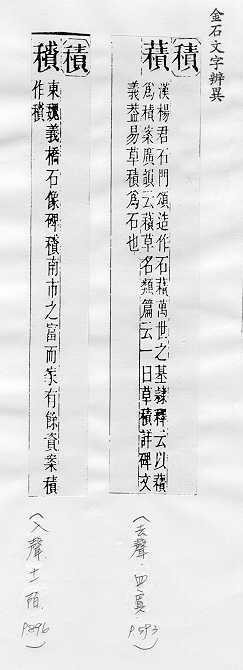 金石文字辨異
積
藉 漢楊君石門頌造作石藉萬世之基隸釋云以藉
爲積案廣韻云藉草名類篇云一曰草積詳碑文
義葢易草積爲石也
(去聲.四寘.
P593)
積
穳 東魏義橋石像碑穳南市之富而家有餘資案積
作穳
(入聲.十一陌.
P896)